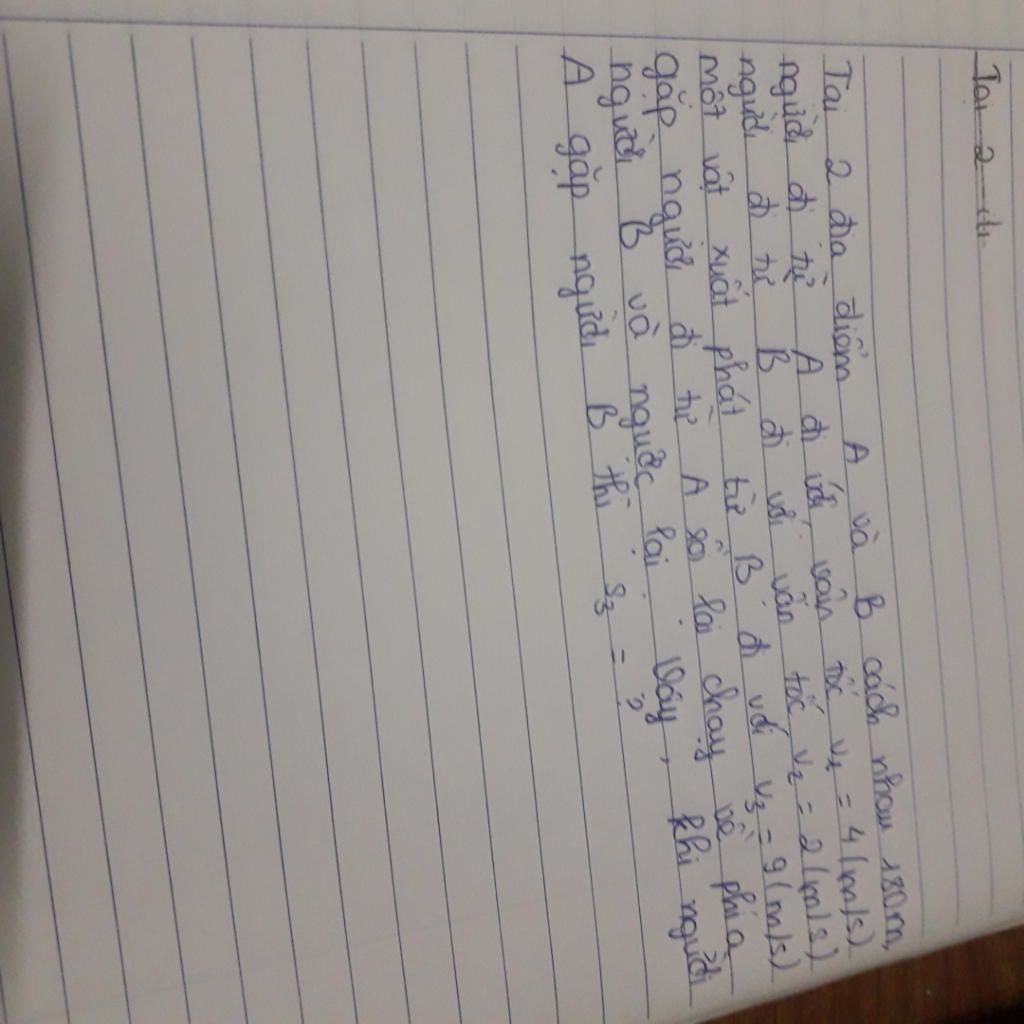 Tại 2 đi
Tại 2 địa điểm A và B cách nhau 180m,
người đi từ A đi với vận tốc v₁ = 4 (m/s)
người đi từ B đi với vân tốc v₂ = 2 (m/s)
một vật xuất phát từ B đi với v₃ = 9 (m/s)
gặp người đi từ A rồi lại chạy về phía
người B và ngược lại. Vậy, khi người
A gặp người B thì s₃ = ?